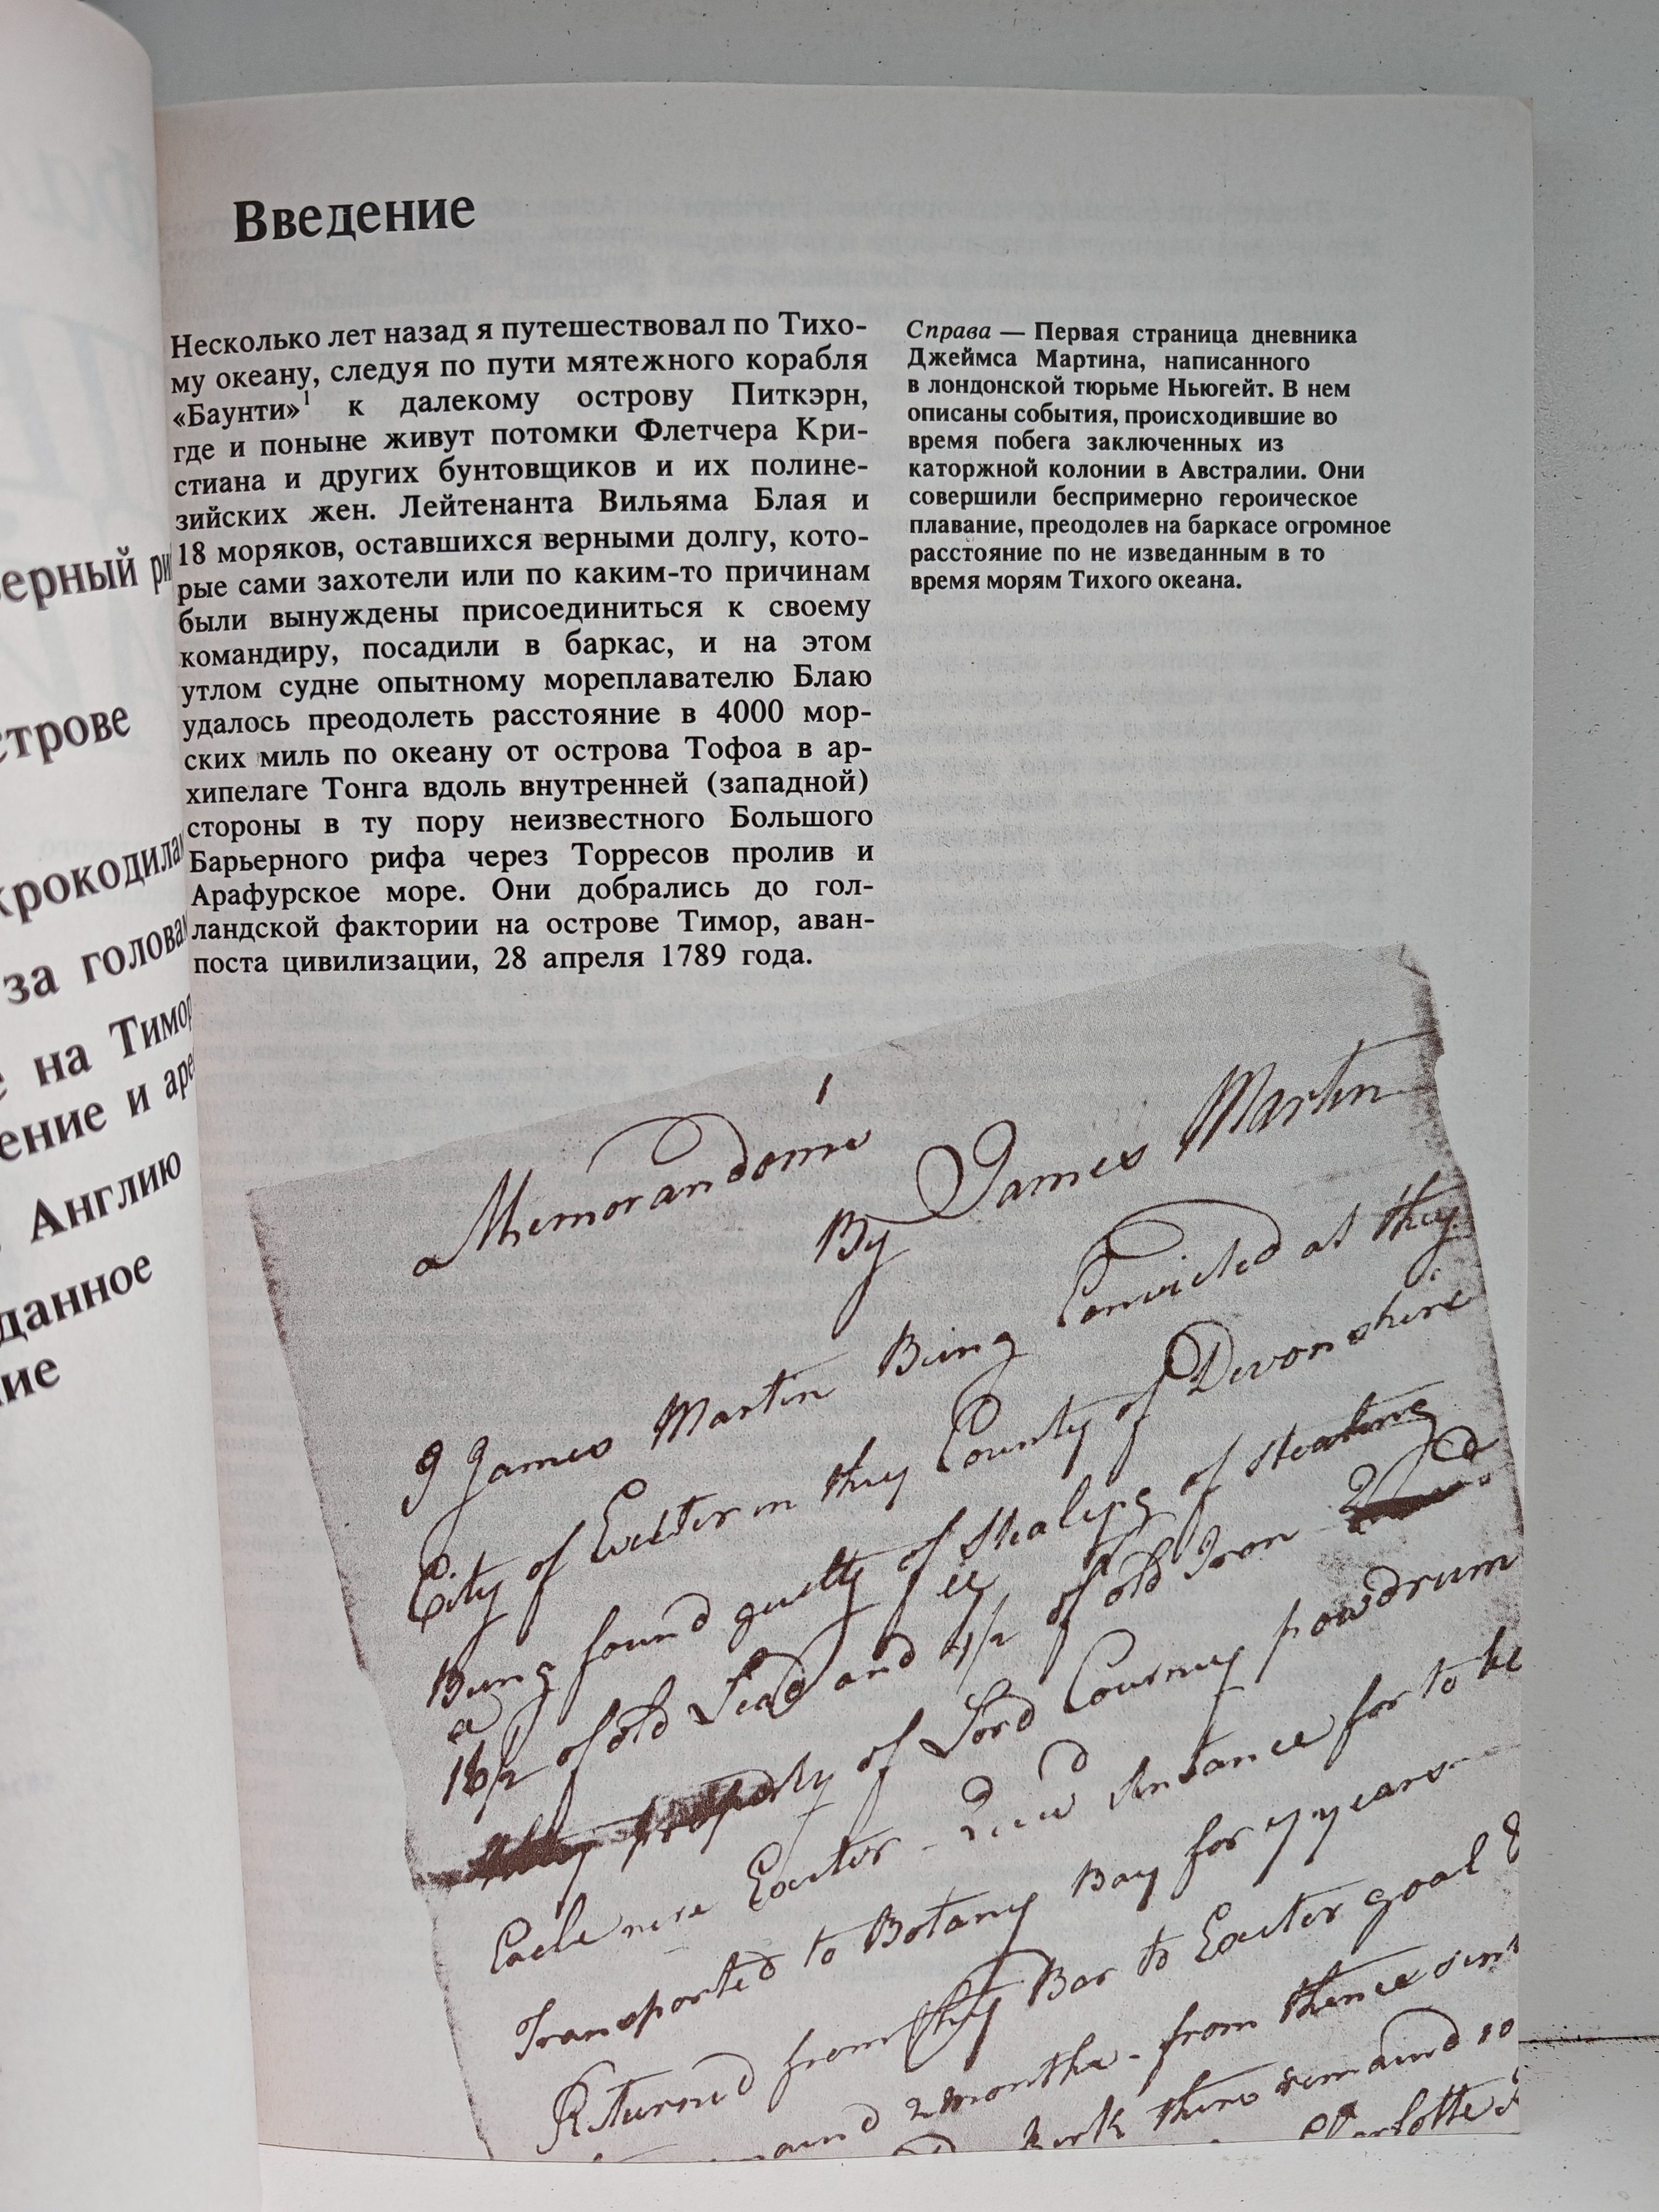 ерный ри
строве
крокодилам
за головам
на Тимор
ение и аре
Англию
данное
ие
Введение
Несколько лет назад я путешествовал по Тихо-
му океану, следуя по пути мятежного корабля
«Баунти»¹ к далекому острову Питкэрн,
где и поныне живут потомки Флетчера Кри-
стиана и других бунтовщиков и их полине-
зийских жен. Лейтенанта Вильяма Блая и
18 моряков, оставшихся верными долгу, кото-
рые сами захотели или по каким-то причинам
были вынуждены присоединиться к своему
командиру, посадили в баркас, и на этом
утлом судне опытному мореплавателю Блаю
удалось преодолеть расстояние в 4000 мор-
ских миль по океану от острова Тофоа в ар-
хипелаге Тонга вдоль внутренней (западной)
стороны в ту пору неизвестного Большого
Барьерного рифа через Торресов пролив и
Арафурское море. Они добрались до гол-
ландской фактории на острове Тимор, аван-
поста цивилизации, 28 апреля 1789 года.
Справа — Первая страница дневника
Джеймса Мартина, написанного
в лондонской тюрьме Ньюгейт. В нем
описаны события, происходившие во
время побега заключенных из
каторжной колонии в Австралии. Они
совершили беспримерно героическое
плавание, преодолев на баркасе огромное
расстояние по не изведанным в то
время морям Тихого океана.
1
Memorandoms
By James Martin
I James Martin Being Convicted at they
City of Exeter in they County of Devonshire
Being found guilty of Stealing
16/2 of old Lead and 4/2 of old Iron
property of Lord Courney powdrum
near Exeter for to be
Transported to Botany Bay for 7 years
Returned from they Bar to Exeter goal
2 months - from thence sent
there remaind
Charlotte